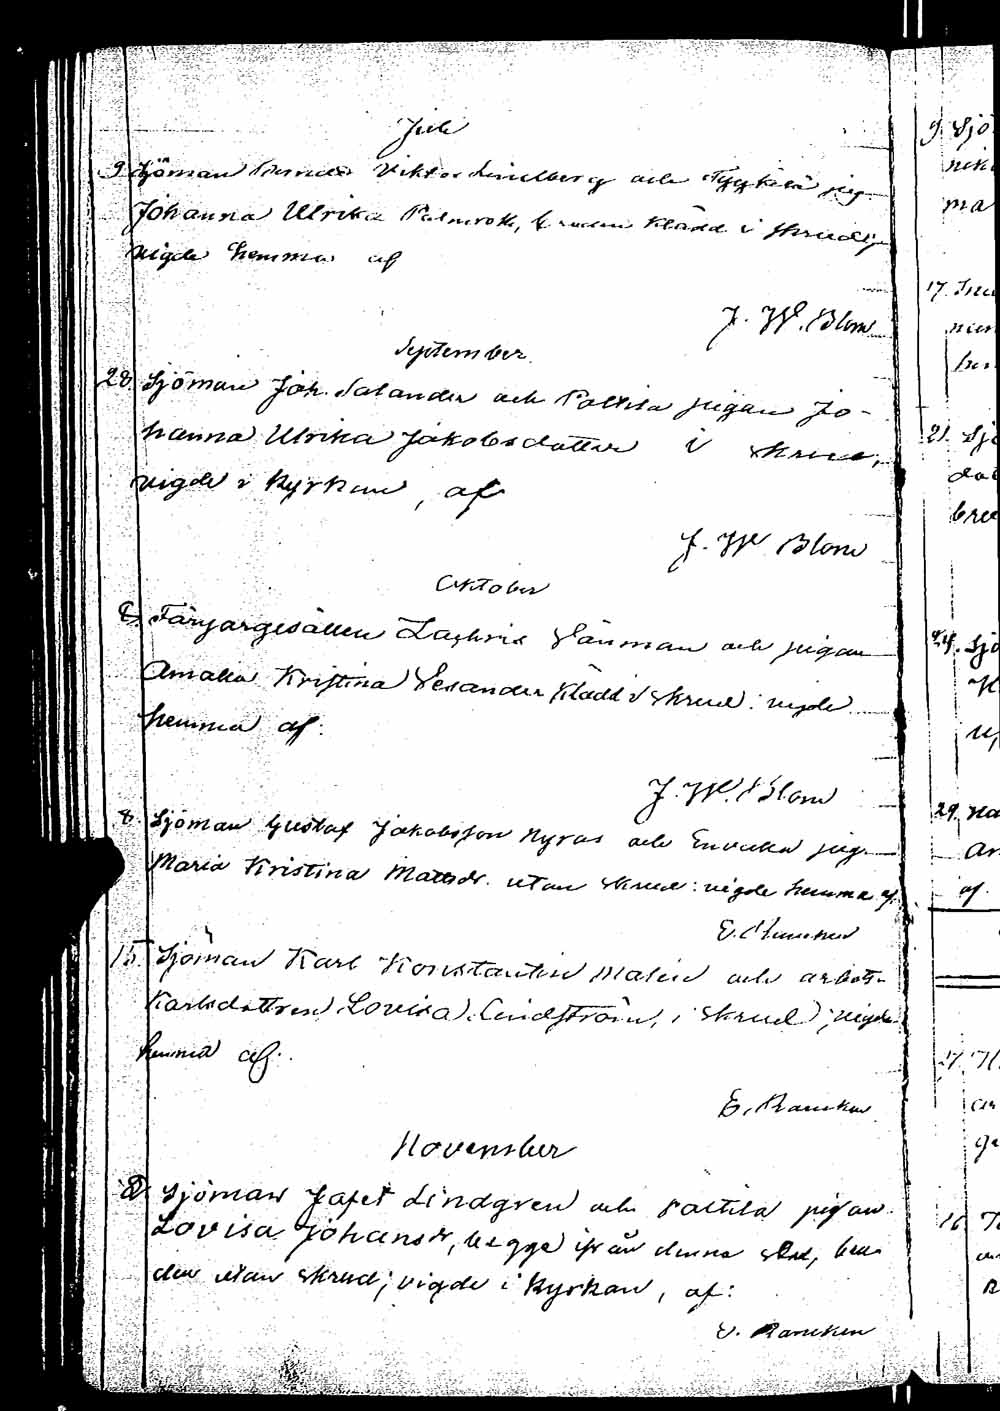 Juli
9. Sjöman Viktor Lindberg och pig.
Johanna Ulrika Palmroth, bruden klädd i skrud,
vigde hemma af
J. W. Blom
September
28. Sjöman Joh. Salander och Polttila pigan Jo-
hanna Ulrika Jakobsdotter i skrud,
vigde i kyrkan, af
J. W. Blom
Oktober
Färgargesällen Zachris och pigan
Amalia Kristina klädd i skrud: vigde
hemma af:
J. W. Blom
8. Sjöman Gustaf Jakobsson Nyroos och pig.
Maria Kristina Mattsdr. utan skrud: vigde hemma af
E. Rancken
15. Sjöman Karl Konstantin Malin och arbets-
karlsdottren Lovisa Lindström, i skrud; vigde
hemma af:
E. Rancken
November
Sjöman Jafet Lindgren och Polttila pigan
Lovisa Johansdr, begge ifrån denna stad, bru-
den utan skrud; vigde i kyrkan, af:
E. Rancken
9. Sjö
ma
17.
21. Sjö
24. Sjö
29.
af.
16.